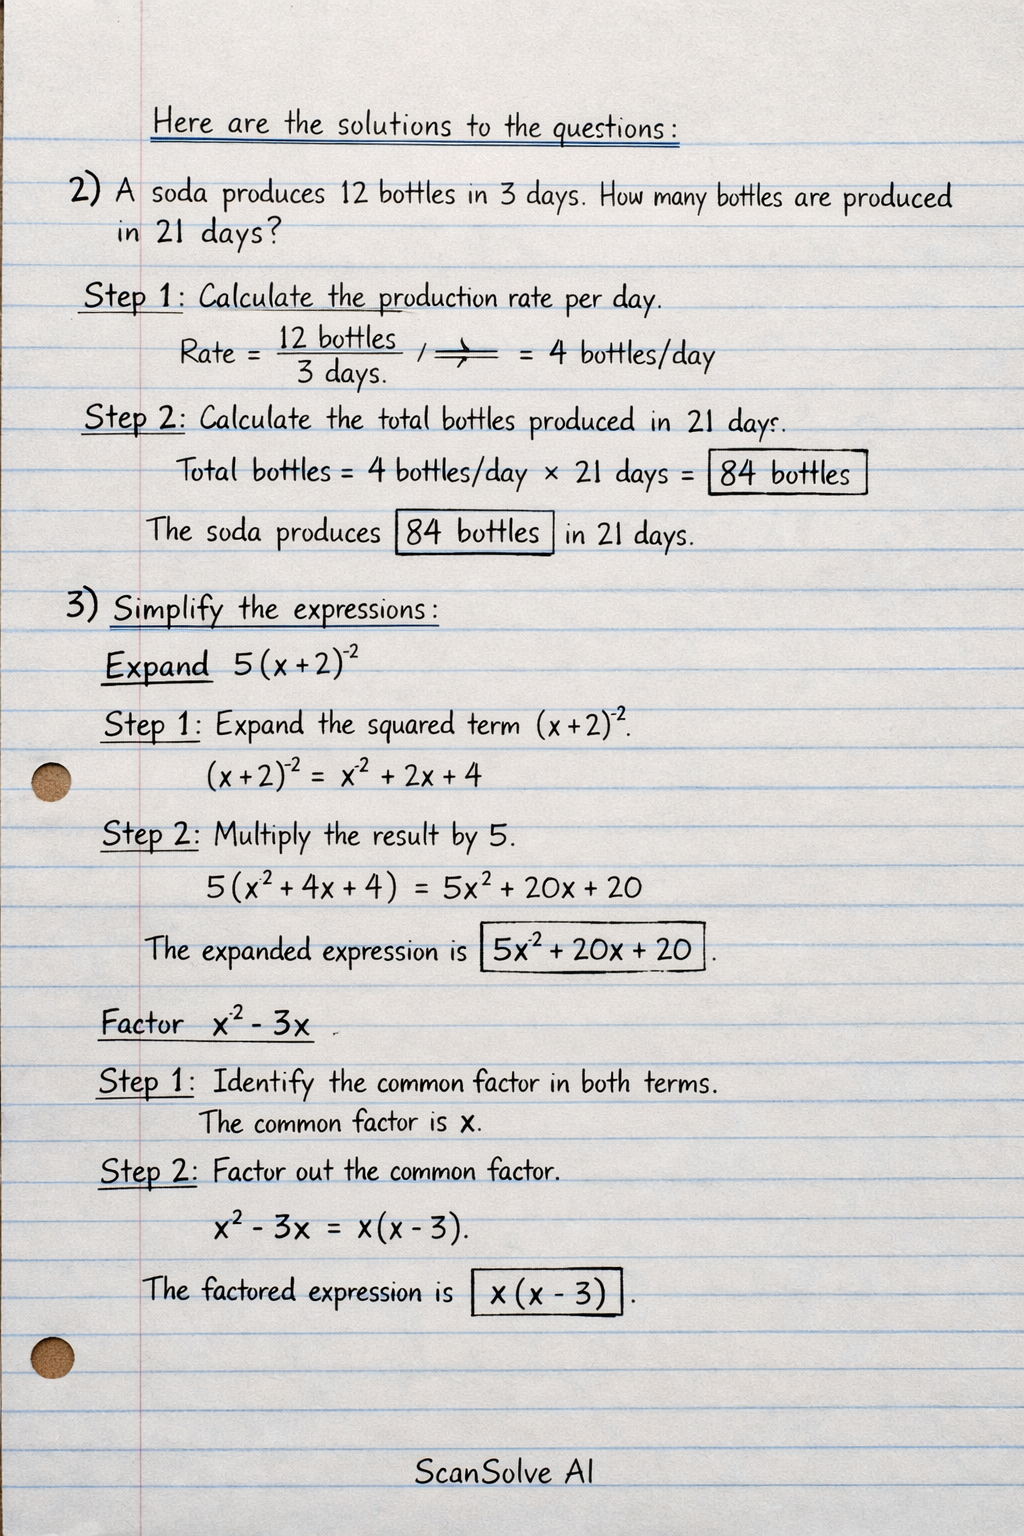 Here are the solutions to the questions:
2) A soda produces 12 bottles in 3 days. How many bottles are produced
in 21 days?
Step 1: Calculate the production rate per day.
Rate = 12 bottles / 3 days. / = 4 bottles/day
Step 2: Calculate the total bottles produced in 21 days.
Total bottles = 4 bottles/day × 21 days = 84 bottles
The soda produces 84 bottles in 21 days.
3) Simplify the expressions:
Expand 5(x+2)⁻²
Step 1: Expand the squared term (x+2)⁻².
(x+2)⁻² = x⁻² + 2x + 4
Step 2: Multiply the result by 5.
5(x² + 4x + 4) = 5x² + 20x + 20
The expanded expression is 5x⁻² + 20x + 20.
Factor x⁻² - 3x
Step 1: Identify the common factor in both terms.
The common factor is x.
Step 2: Factor out the common factor.
x² - 3x = x(x - 3).
The factored expression is x(x - 3).
ScanSolve AI